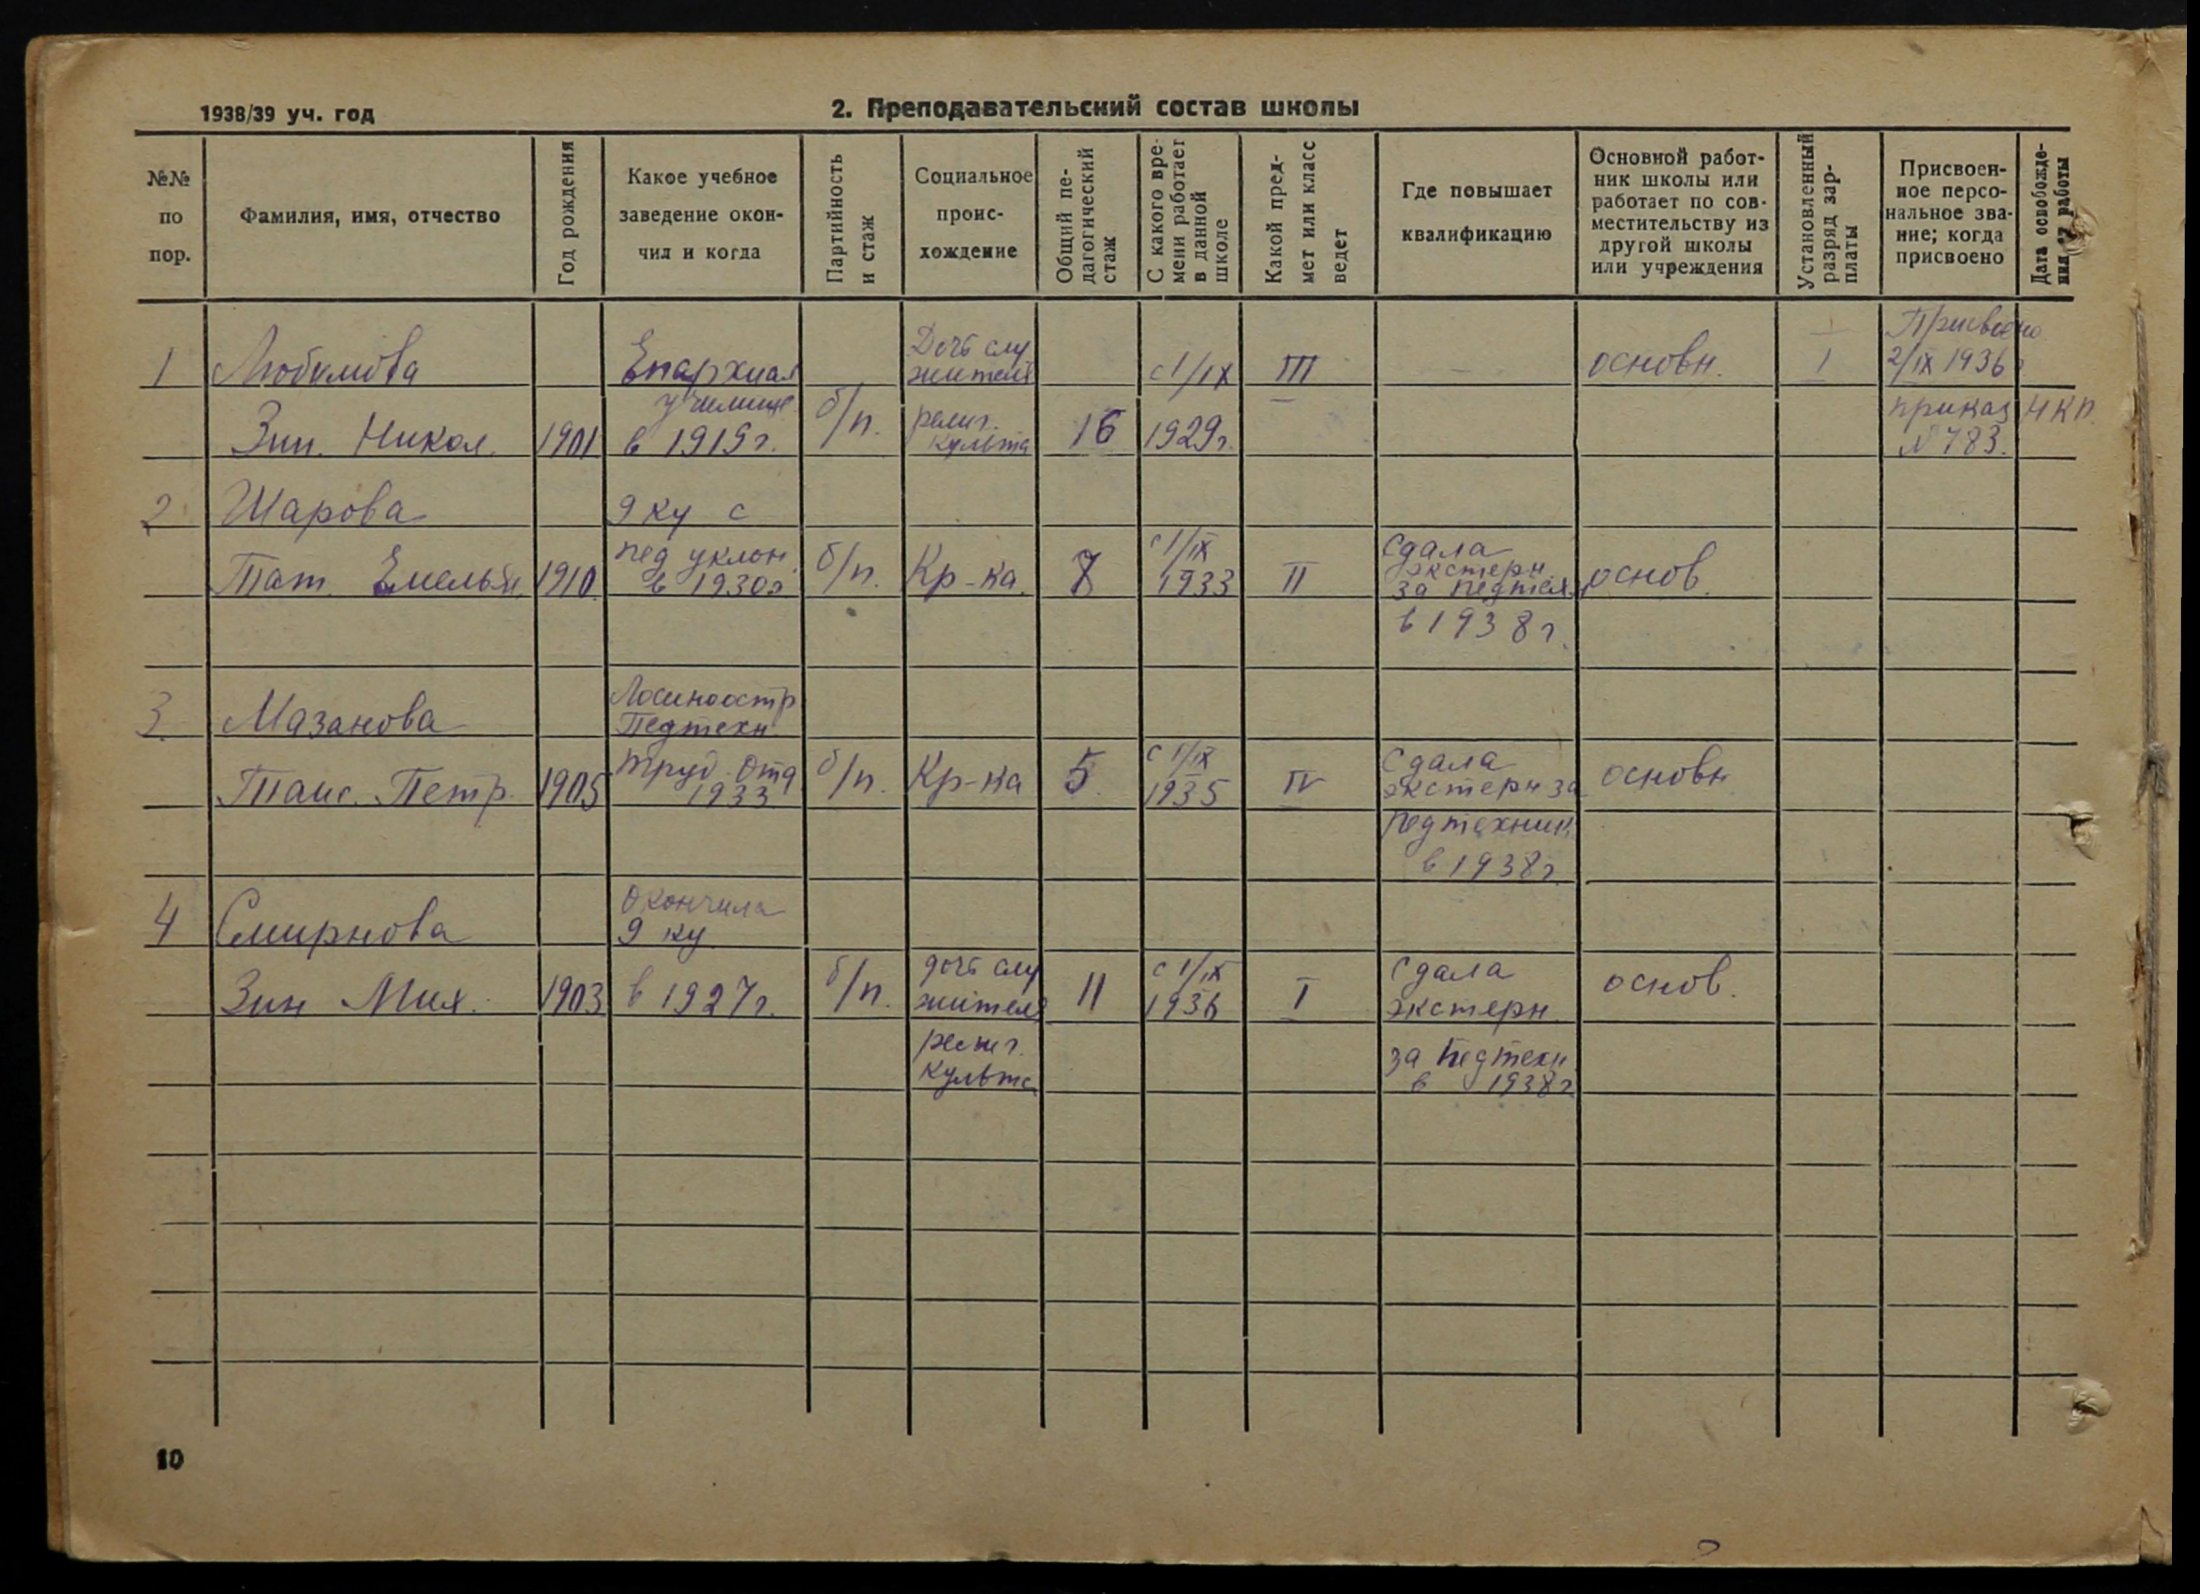 1938/39 уч. год
2. Преподавательский состав школы
№№ по пор.
Фамилия, имя, отчество
Год рождения
Какое учебное заведение окон-
чил и когда
Партийность и стаж
Социальное проис-
хождение
Общий пе-
дагогический стаж
С какого вре-
мени работает в данной школе
Какой пред-
мет или класс ведет
Где повышает квалификацию
Основной работ-
ник школы или
работает по сов-
местительству из
другой школы
или учреждения
Установленный
разряд зар-
платы
Присвоен-
ное персо-
нальное зва-
ние; когда
присвоено
Дата освобожде-
ния от работы
1 Любимова Епархиал Дочь слу жителя с 1/IX III основн. I Присвоено 2/IX 1936 г
Зин. Никол. 1901 училище в 1919 г. б/п. религ. культа 16 1929 г. приказ НКП. № 783.
2 Шарова 9 ку с
Тат. Емельян. 1910 пед уклон. в 1930 г б/п. Кр-ка. 7 с 1/IX 1933 II Сдала экстерн за педтех основ.
в 1938 г.
3. Мазанова Лосиноостр Педтехн
Таис. Петр. 1905 труд. отд 1933 б/п. Кр-ка 5. с 1/IX 1935 IV Сдала экстерн за основн
педтехник
в 1938 г.
4 Смирнова окончила 9 ку
Зин Мих. 1903 в 1927 г. б/п. дочь слу жителя 11 с 1/IX 1936 I Сдала экстерн основ.
религ. культа за педтехн в 1938 г
10